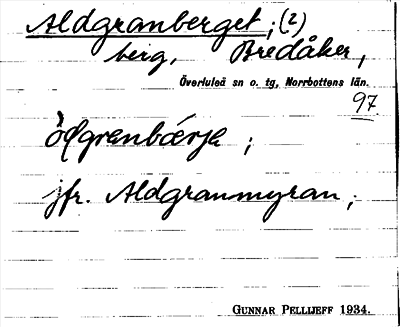 Aldgranberget ; (2)
berg, Bredåker,
Överluleå sn o. tg, Norrbottens län.
97
jfr. Aldgranmyran ;
GUNNAR PELLIJEFF 1934.